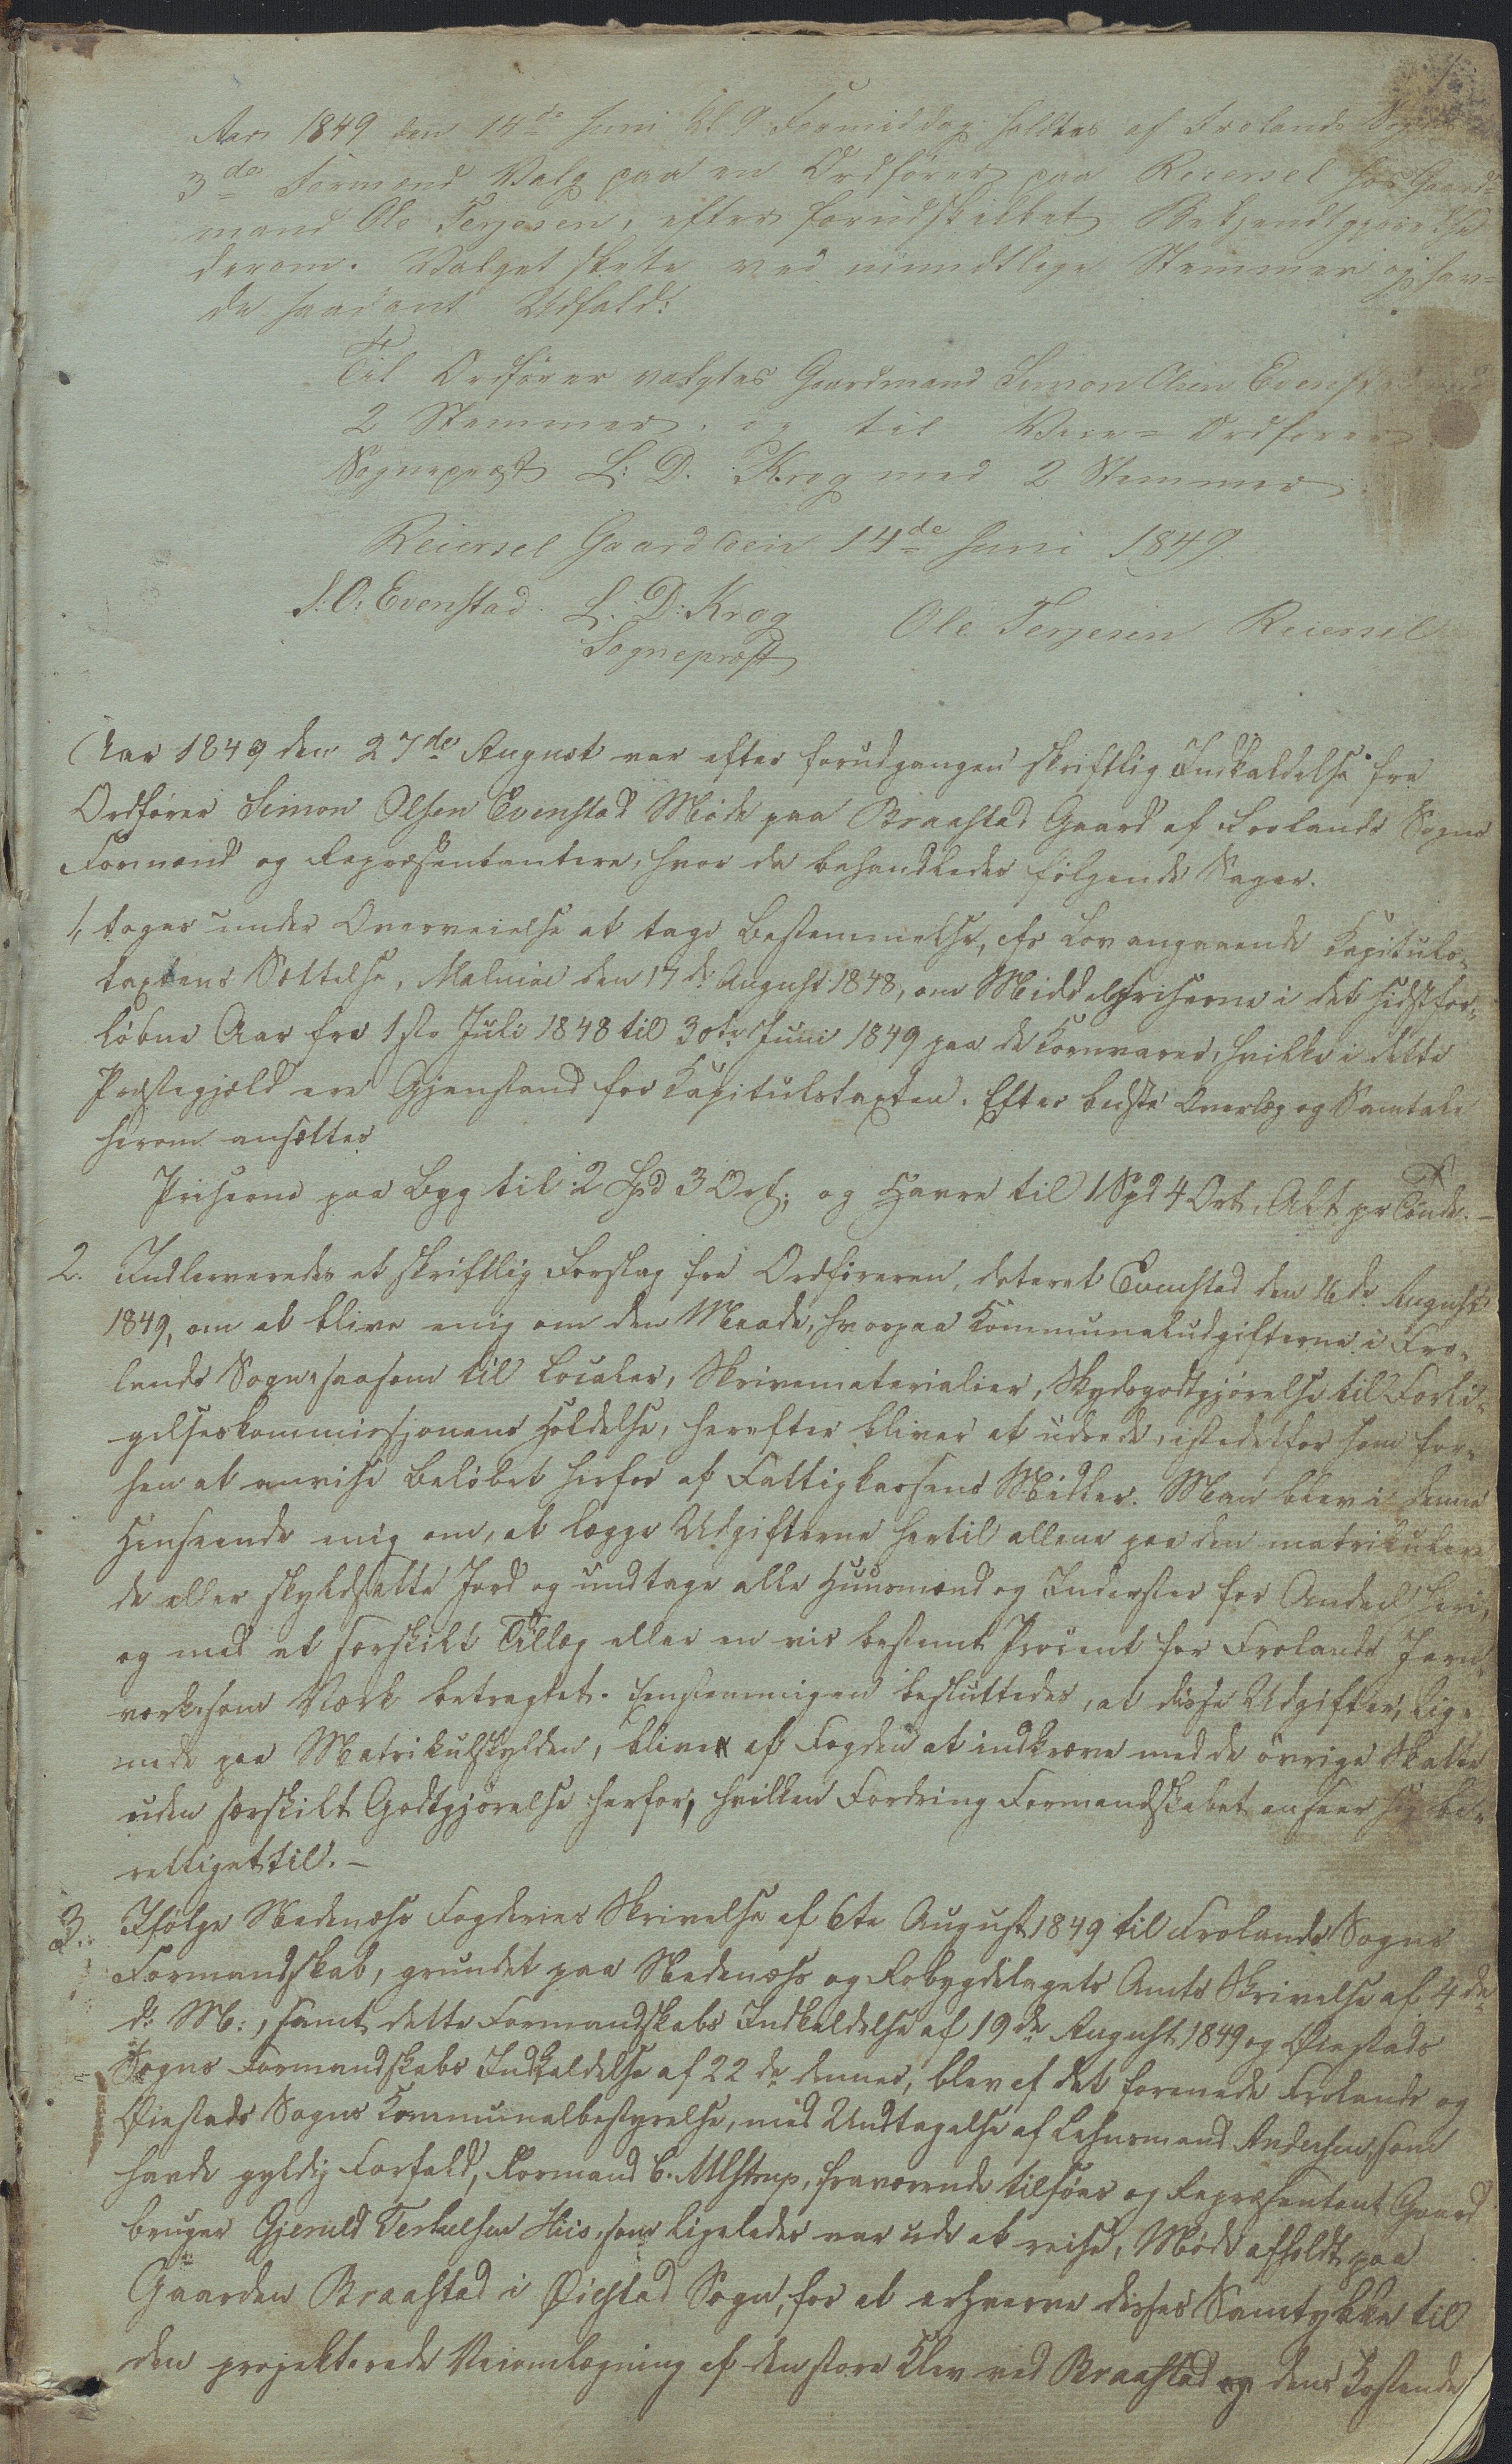 Aar 1849 den 14de Juni Kl 9 Formiddag holdtes af Frolands Sogns
3de Formænd Valg paa en Ordfører paa Reiersel hos Gaard=
mand Ole Terjesen, efter forudskikket Bekjendtgjørelse
derom. Valget skete ved mundtlige Stemmer og hav=
de saadant Udfald:
Til Ordfører valgtes Gaardmand Simon Olsen Evenstad med
2 Stemmer, og til Vice=Ordfører
Sognepræst L: D. Krog med 2 Stemmer
Reiersel Gaard den 14de Juni 1849
S: O: Evenstad. L. D: Krog Ole Terjesen Reiersel
Sognepræst
Aar 1849 den 27de August var efter forudgangen skriftlig Indkaldelse fra
Ordfører Simon Olsen Evenstad Møde paa Braastad Gaard af Frolands Sogns
Formænd og Repræsentantere, hvor da behandledes følgende Sager.
1, toges under Overveielse at tage Bestemmelse, efr Lov angaaende Kapituls-
taxtens Sættelse, Malmøe den 17de August 1848, om Middelpriserne i det sidstfor-
løbne Aar fra 1ste Juli 1848 til 30te Juni 1849 paa de Kornvarer, hvilke i dette
Præstegjeld ere Gjenstand for Kapitulstaxten. Efter bedste Overlæg og Samtale
herom ansættes
Priserne paa Byg til 2 Spd 3 Ort; og Havre til 1 Spd 4 Ort, Alt pr Tønde. –
2. Indleveredes et skriftlig Forslag fra Ordføreren, dateret Evenstad den 16de August
1849, om at blive enig om den Maade, hvorpaa Kommunaludgifterne i Fro-
lands Sogn, saasom til Localer, Skrivematerialier, Skydsgodtgjørelse til Forli-
gelseskommissjonens Holdelse, herefter bliver at udrede, istedetfor som før-
hen at anvise Beløbet herfor af Fattigkassens Midler. Man blev i denne
Henseende enig om, at lægge Udgifterne hertil allene paa den matrikulere-
de eller skyldsatte Jord og undtage alle Huusmænd og Inderster for Andeel heri,
og med et særskilt Tillæg eller en vis bestemt Procent for Frolands Jern-
værk, som Værk betragtet. Eenstemmigen besluttedes, at disse Udgifter, lig-
nede paa Matrikulskylden, bliver af Fogden at indkræve med de øvrige Skatter
uden særskilt Godtgjørelse herfor, hvilken Fordring Formandskabet anseer sig be-
rettiget til. –
3. Ifølge Nedenæs Fogderies Skrivelse af 6te August 1849 til Frolands Sogns
Formandskab, grundet paa Nedenæs og Robygdelagets Amts Skrivelse af 4de
d: M:, samt dette Formandskabs Indkaldelse af 19de August 1849 og Øiestads
Sogns Formandskabs Indkaldelse af 22de dennes, blev af det forenede Frolands og
Øiestads Sogns Kommunalbestyrelse, med Undtagelse af Lehnsmand Andersen, som
havde gyldig Forfald, Formand C. Ulstrup, fraværende tilsøes og Repræsentant Gaard
bruger Gjeruld Terkelsen Hiis, som ligeledes var ude at reise, Møde afholdt paa
Gaarden Braastad i Øiestad Sogn, for at erhverve disses Samtykke til
den projekterede Veiomlægning af den store Klev ved Braastad og dens Kostende